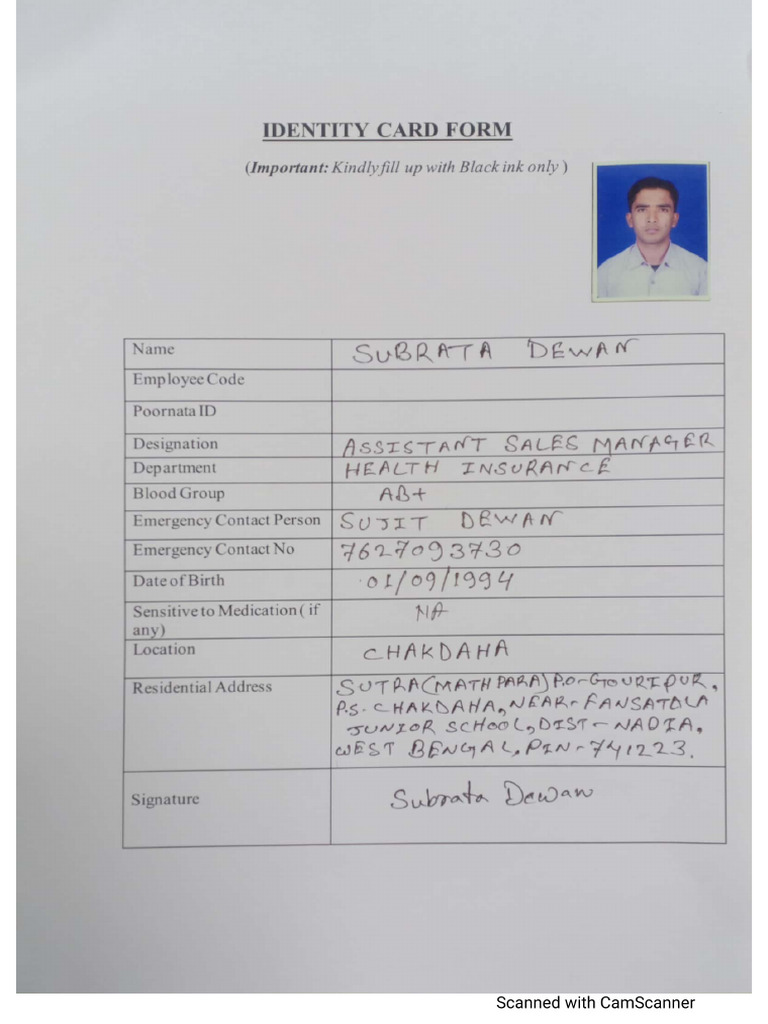 IDENTITY CARD FORM
(Important: Kindly fill up with Black ink only )
Name SUBRATA DEWAN
Employee Code
Poornata ID
Designation ASSISTANT SALES MANAGER
Department HEALTH INSURANCE
Blood Group AB+
Emergency Contact Person SUJIT DEWAN
Emergency Contact No 7627093730
Date of Birth 01/09/1994
Sensitive to Medication ( if
any) NA
Location CHAKDAHA
Residential Address SUTRA(MATHPARA) P.O-GOURIPUR,
P.S-CHAKDAHA, NEAR-FANSATOLA
JUNIOR SCHOOL, DIST-NADIA,
WEST BENGAL, PIN-741223.
Signature Subrata Dewan
Scanned with CamScanner